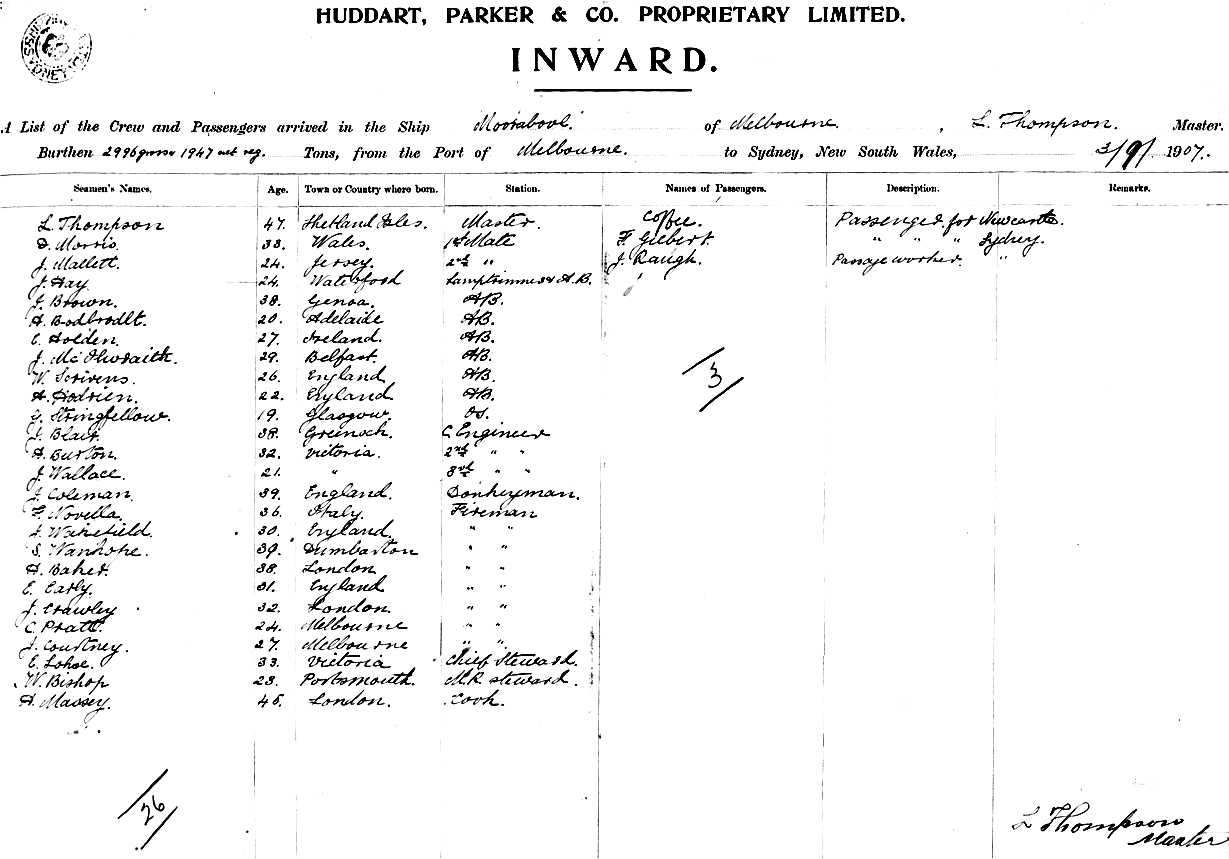 HUDDART, PARKER & CO. PROPRIETARY LIMITED.
INWARD.
A List of the Crew and Passengers arrived in the Ship Moorabool. of Melbourne. , L. Thompson. Master.
Burthen 2996 gross 1947 net reg. Tons, from the Port of Melbourne. to Sydney, New South Wales, 3/9/1907.
Seamen's Names. Age. Town or Country where born. Station. Names of Passengers. Description. Remarks.
L. Thompson 47. Shetland Isles. Master. Coffee. Passenger for Newcastle.
D. Morris. 33. Wales. 1st Mate F. Gilbert. " " " Sydney.
J. Mallett. 24. Jersey. 2nd " J. Raugh. Passage worker. "
J. Hay 24. Waterford Lamptrimmer & A.B.
J. Brown. 38. Genoa. AB.
A. Bodbrodlt. 20. Adelaide AB.
C. Holden. 27. Ireland. AB.
J. McIlwraith. 29. Belfast. AB.
W. Scrivens. 26. England AB.
A. Hodrien. 22. England AB.
G. Stringfellow. 19. Glasgow. OS.
J. Blair. 38. Greenock. C. Engineer
A. Burton. 32. Victoria. 2nd " "
J. Wallace. 21. " 3rd " "
J. Coleman. 39. England. Donkeyman.
F. Novella. 36. Italy. Fireman
J. Wakefield. 30. England. " "
S. Wanhope. 39. Dumbarton " "
A. Baker. 38. London " "
E. Early. 31. England " "
J. Crawley 32. London. " "
C. Pratt. 24. Melbourne " "
J. Courtney. 27. Melbourne " "
C. Lohse. 33. Victoria Chief Steward.
W. Bishop 23. Portsmouth. M.R. steward.
A. Massey. 45. London. Cook.
3
26
L Thompson
Master